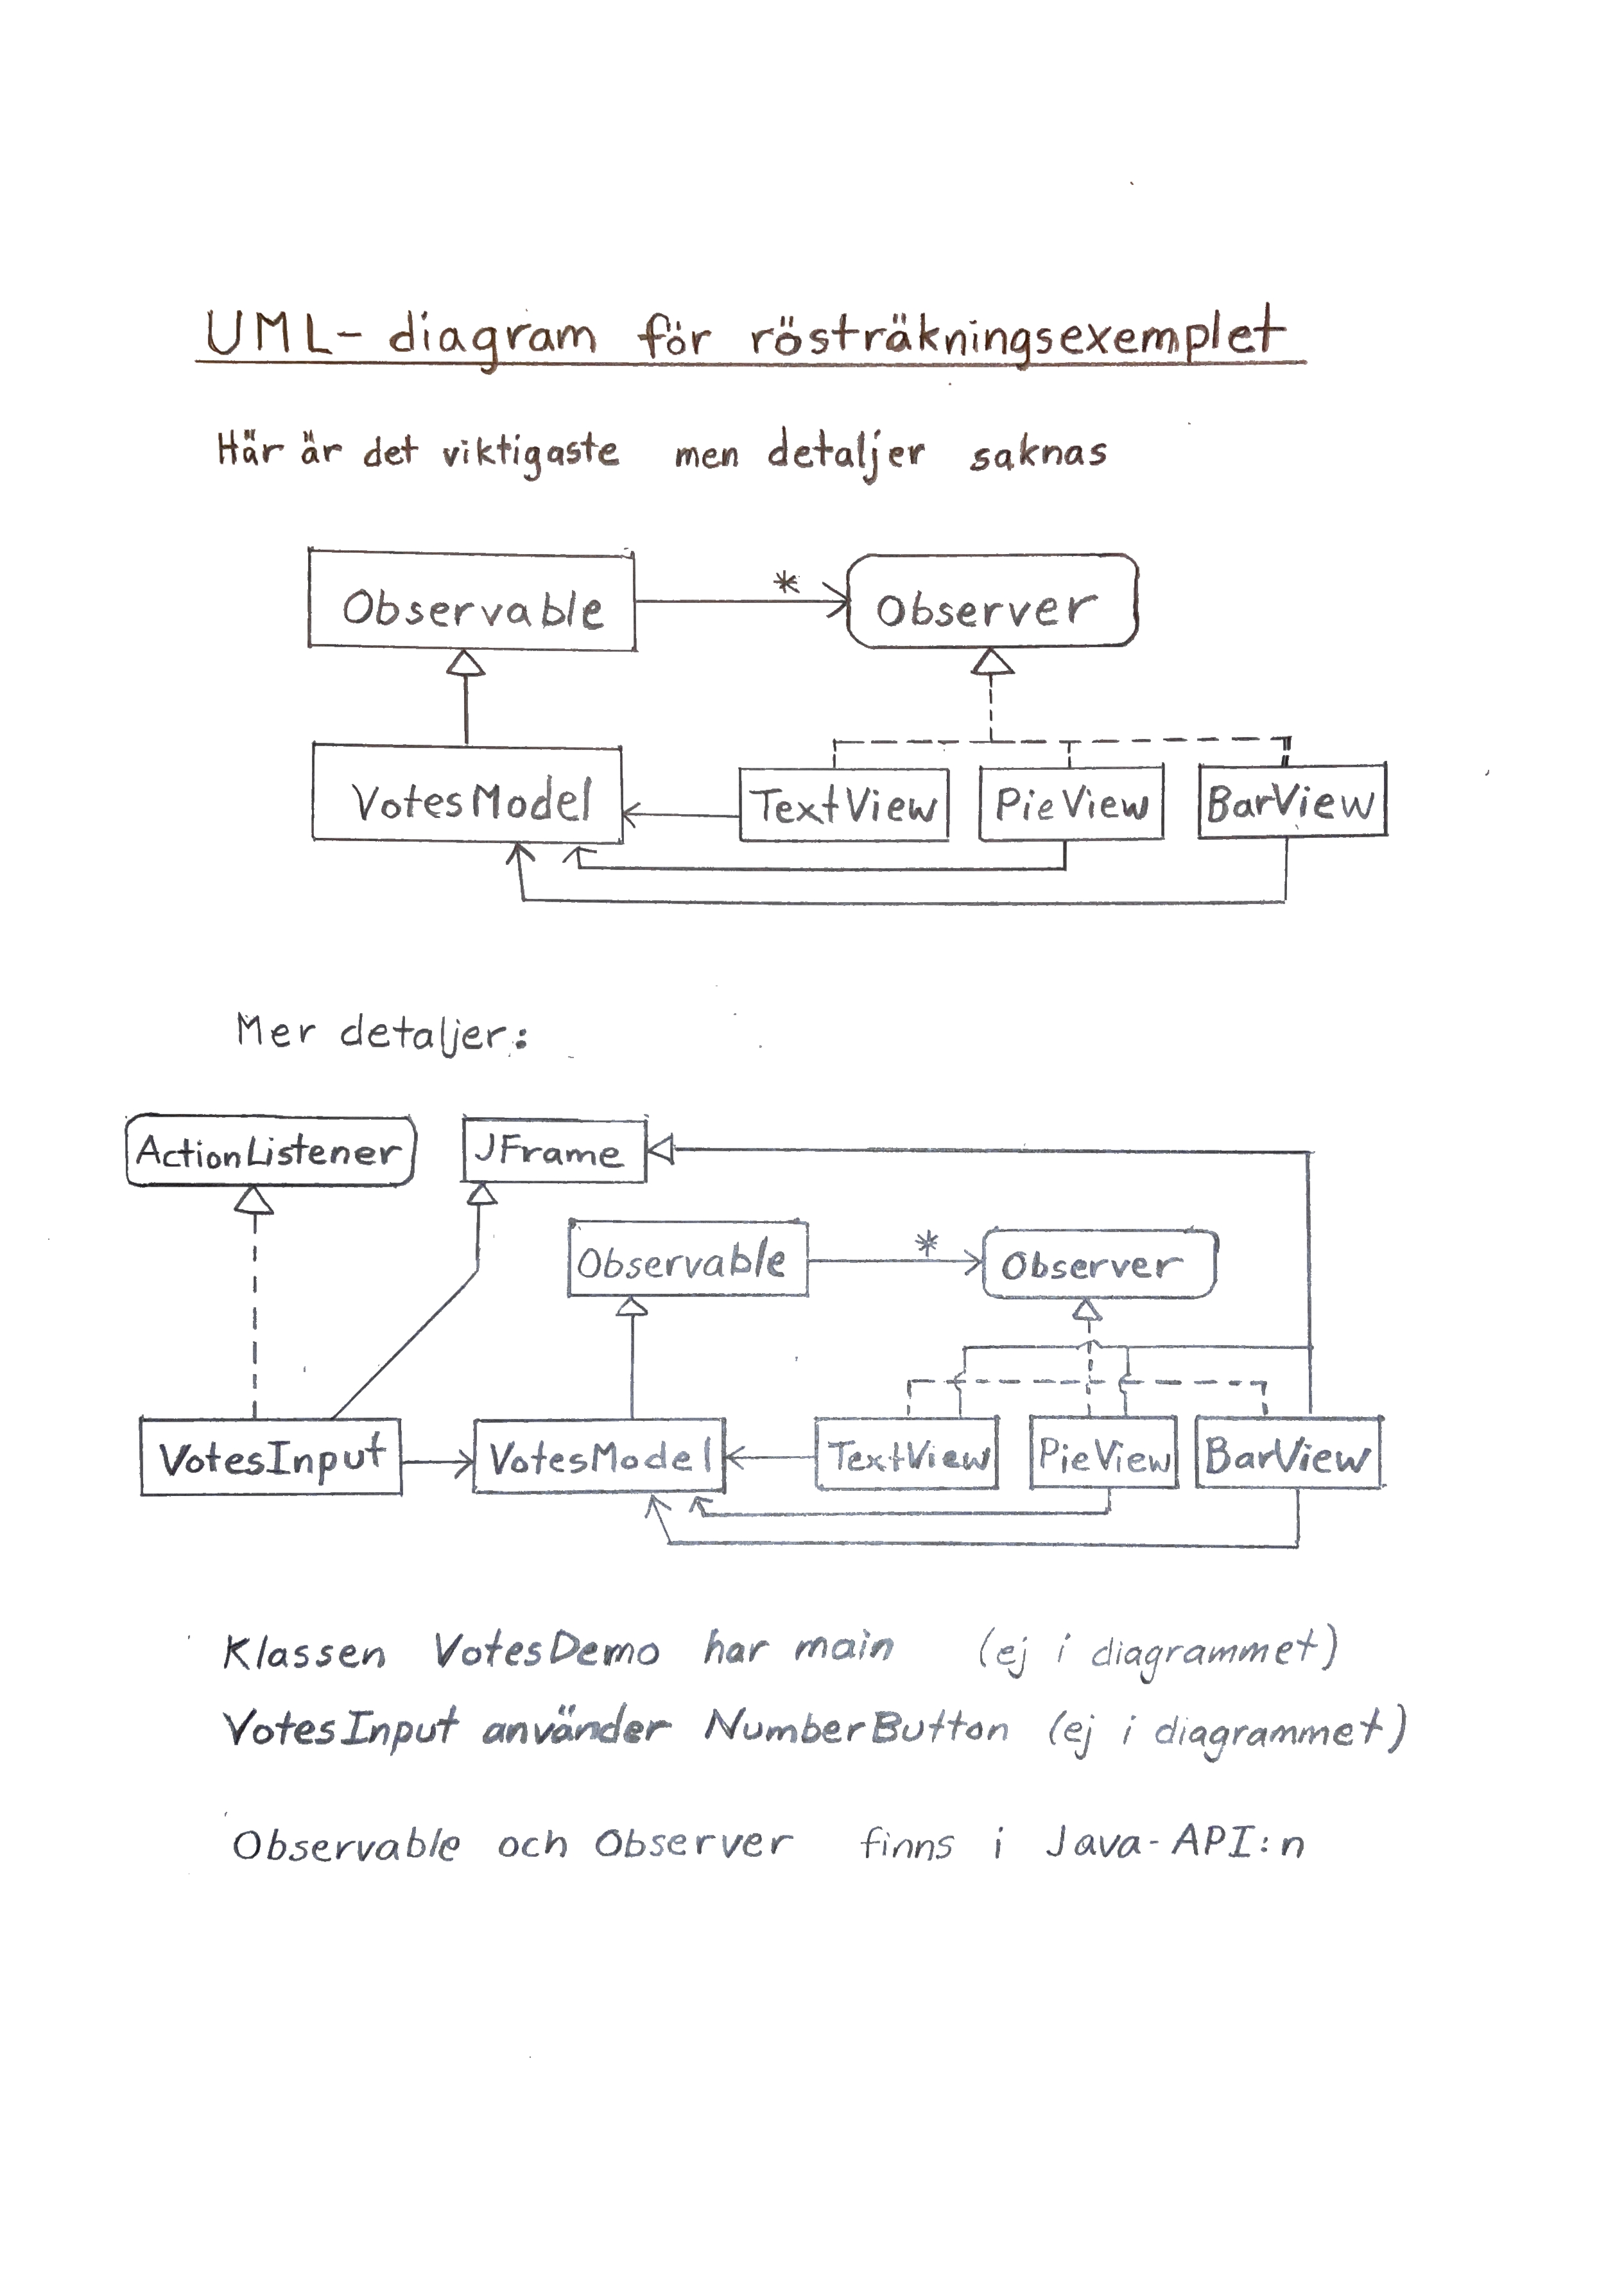 UML-diagram för rösträkningsexemplet
Här är det viktigaste men detaljer saknas
Observable * Observer
VotesModel TextView PieView BarView
Mer detaljer:
ActionListener JFrame
Observable * Observer
VotesInput VotesModel TextView PieView BarView
Klassen VotesDemo har main (ej i diagrammet)
VotesInput använder NumberButton (ej i diagrammet)
Observable och Observer finns i Java-API:n